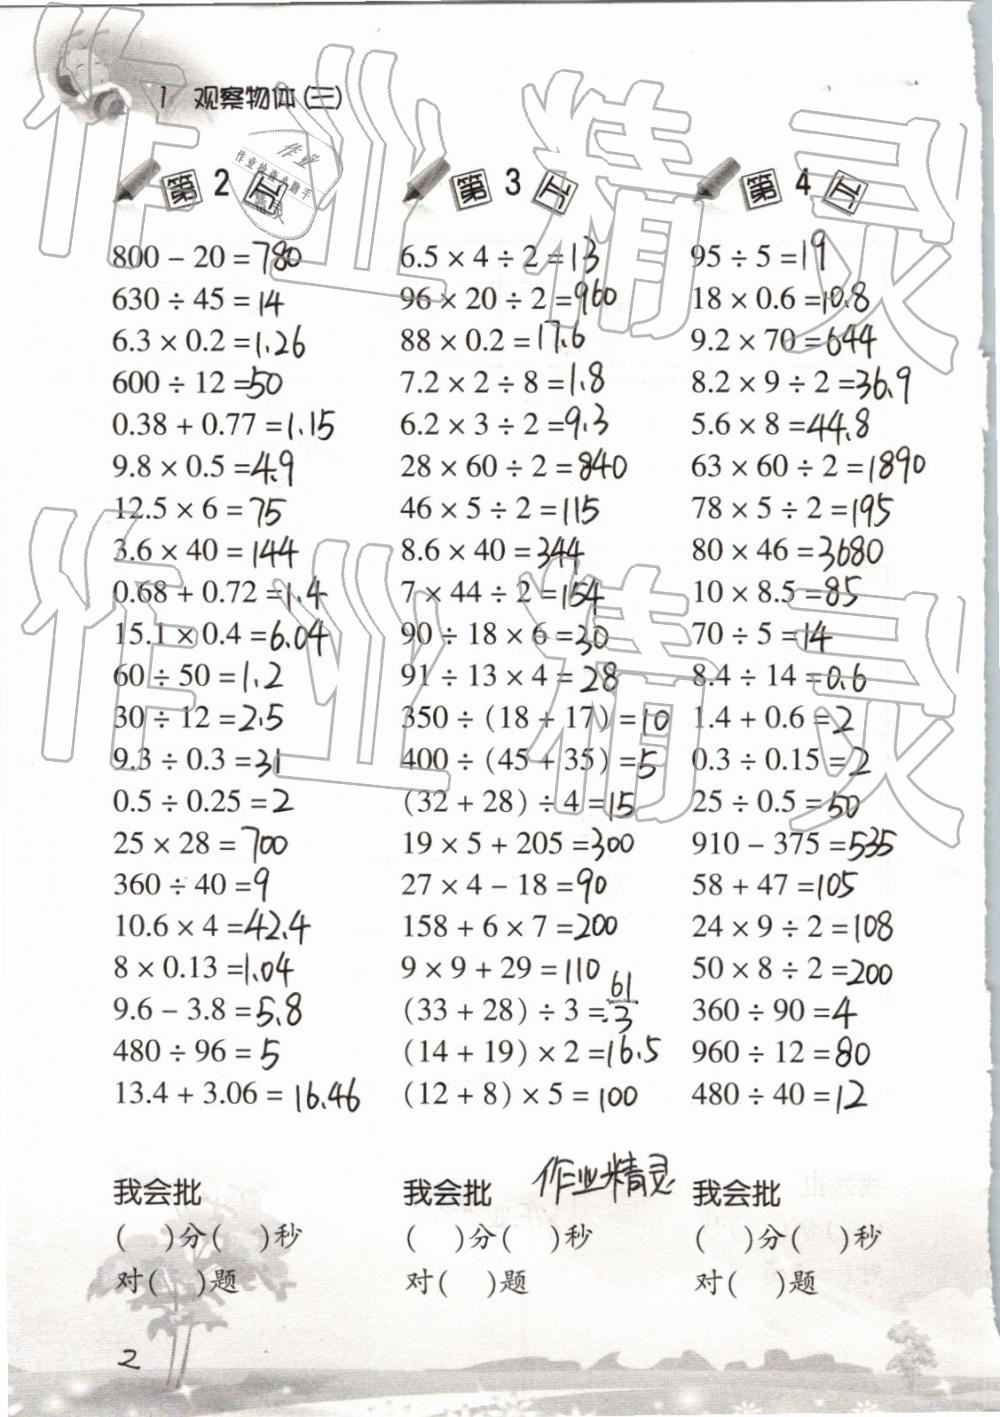 1 观察物体(三)
第2天
800 − 20 = 780
630 ÷ 45 = 14
6.3 × 0.2 = 1.26
600 ÷ 12 = 50
0.38 + 0.77 = 1.15
9.8 × 0.5 = 4.9
12.5 × 6 = 75
3.6 × 40 = 144
0.68 + 0.72 = 1.4
15.1 × 0.4 = 6.04
60 ÷ 50 = 1.2
30 ÷ 12 = 2.5
9.3 ÷ 0.3 = 31
0.5 ÷ 0.25 = 2
25 × 28 = 700
360 ÷ 40 = 9
10.6 × 4 = 42.4
8 × 0.13 = 1.04
9.6 − 3.8 = 5.8
480 ÷ 96 = 5
13.4 + 3.06 = 16.46
我会批
(  )分(  )秒
对(  )题
第3天
6.5 × 4 ÷ 2 = 13
96 × 20 ÷ 2 = 960
88 × 0.2 = 17.6
7.2 × 2 ÷ 8 = 1.8
6.2 × 3 ÷ 2 = 9.3
28 × 60 ÷ 2 = 840
46 × 5 ÷ 2 = 115
8.6 × 40 = 344
7 × 44 ÷ 2 = 154
90 ÷ 18 × 6 = 30
91 ÷ 13 × 4 = 28
350 ÷ (18 + 17) = 10
400 ÷ (45 + 35) = 5
(32 + 28) ÷ 4 = 15
19 × 5 + 205 = 300
27 × 4 − 18 = 90
158 + 6 × 7 = 200
9 × 9 + 29 = 110
(33 + 28) ÷ 3 = 61/3
(14 + 19) × 2 = 16.5
(12 + 8) × 5 = 100
作业精灵
我会批
(  )分(  )秒
对(  )题
第4天
95 ÷ 5 = 19
18 × 0.6 = 10.8
9.2 × 70 = 644
8.2 × 9 ÷ 2 = 36.9
5.6 × 8 = 44.8
63 × 60 ÷ 2 = 1890
78 × 5 ÷ 2 = 195
80 × 46 = 3680
10 × 8.5 = 85
70 ÷ 5 = 14
8.4 ÷ 14 = 0.6
1.4 + 0.6 = 2
0.3 ÷ 0.15 = 2
25 ÷ 0.5 = 50
910 − 375 = 535
58 + 47 = 105
24 × 9 ÷ 2 = 108
50 × 8 ÷ 2 = 200
360 ÷ 90 = 4
960 ÷ 12 = 80
480 ÷ 40 = 12
我会批
(  )分(  )秒
对(  )题
2
作业精灵
作业精灵